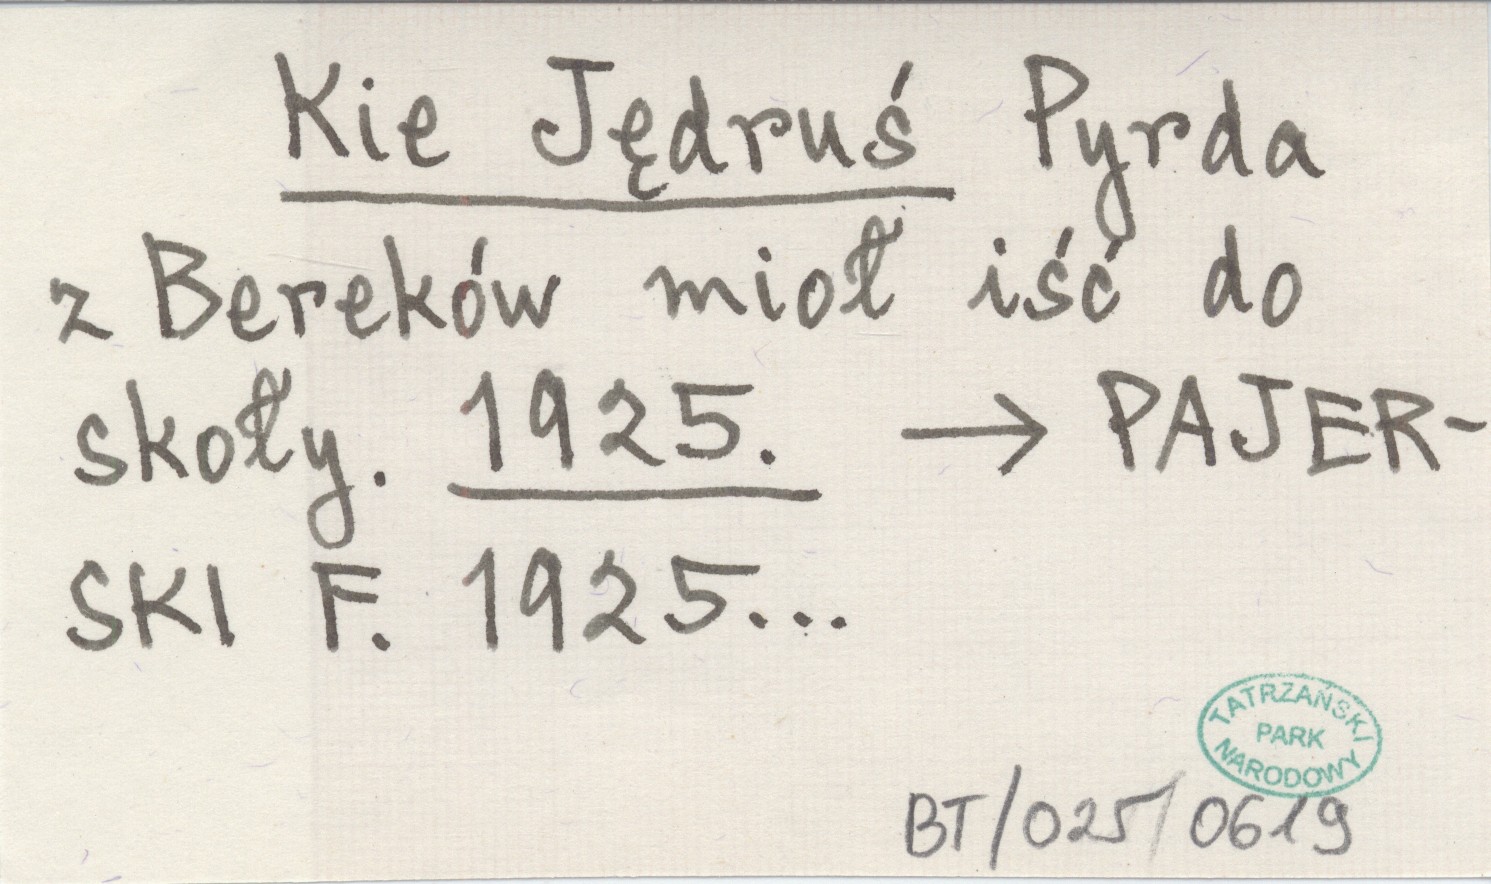 Kie Jędruś Pyrda
z Bereków mioł iść do
skoły. 1925. → PAJER-
SKI F. 1925...
TATRZAŃSKI
PARK
NARODOWY
BT/025/0619